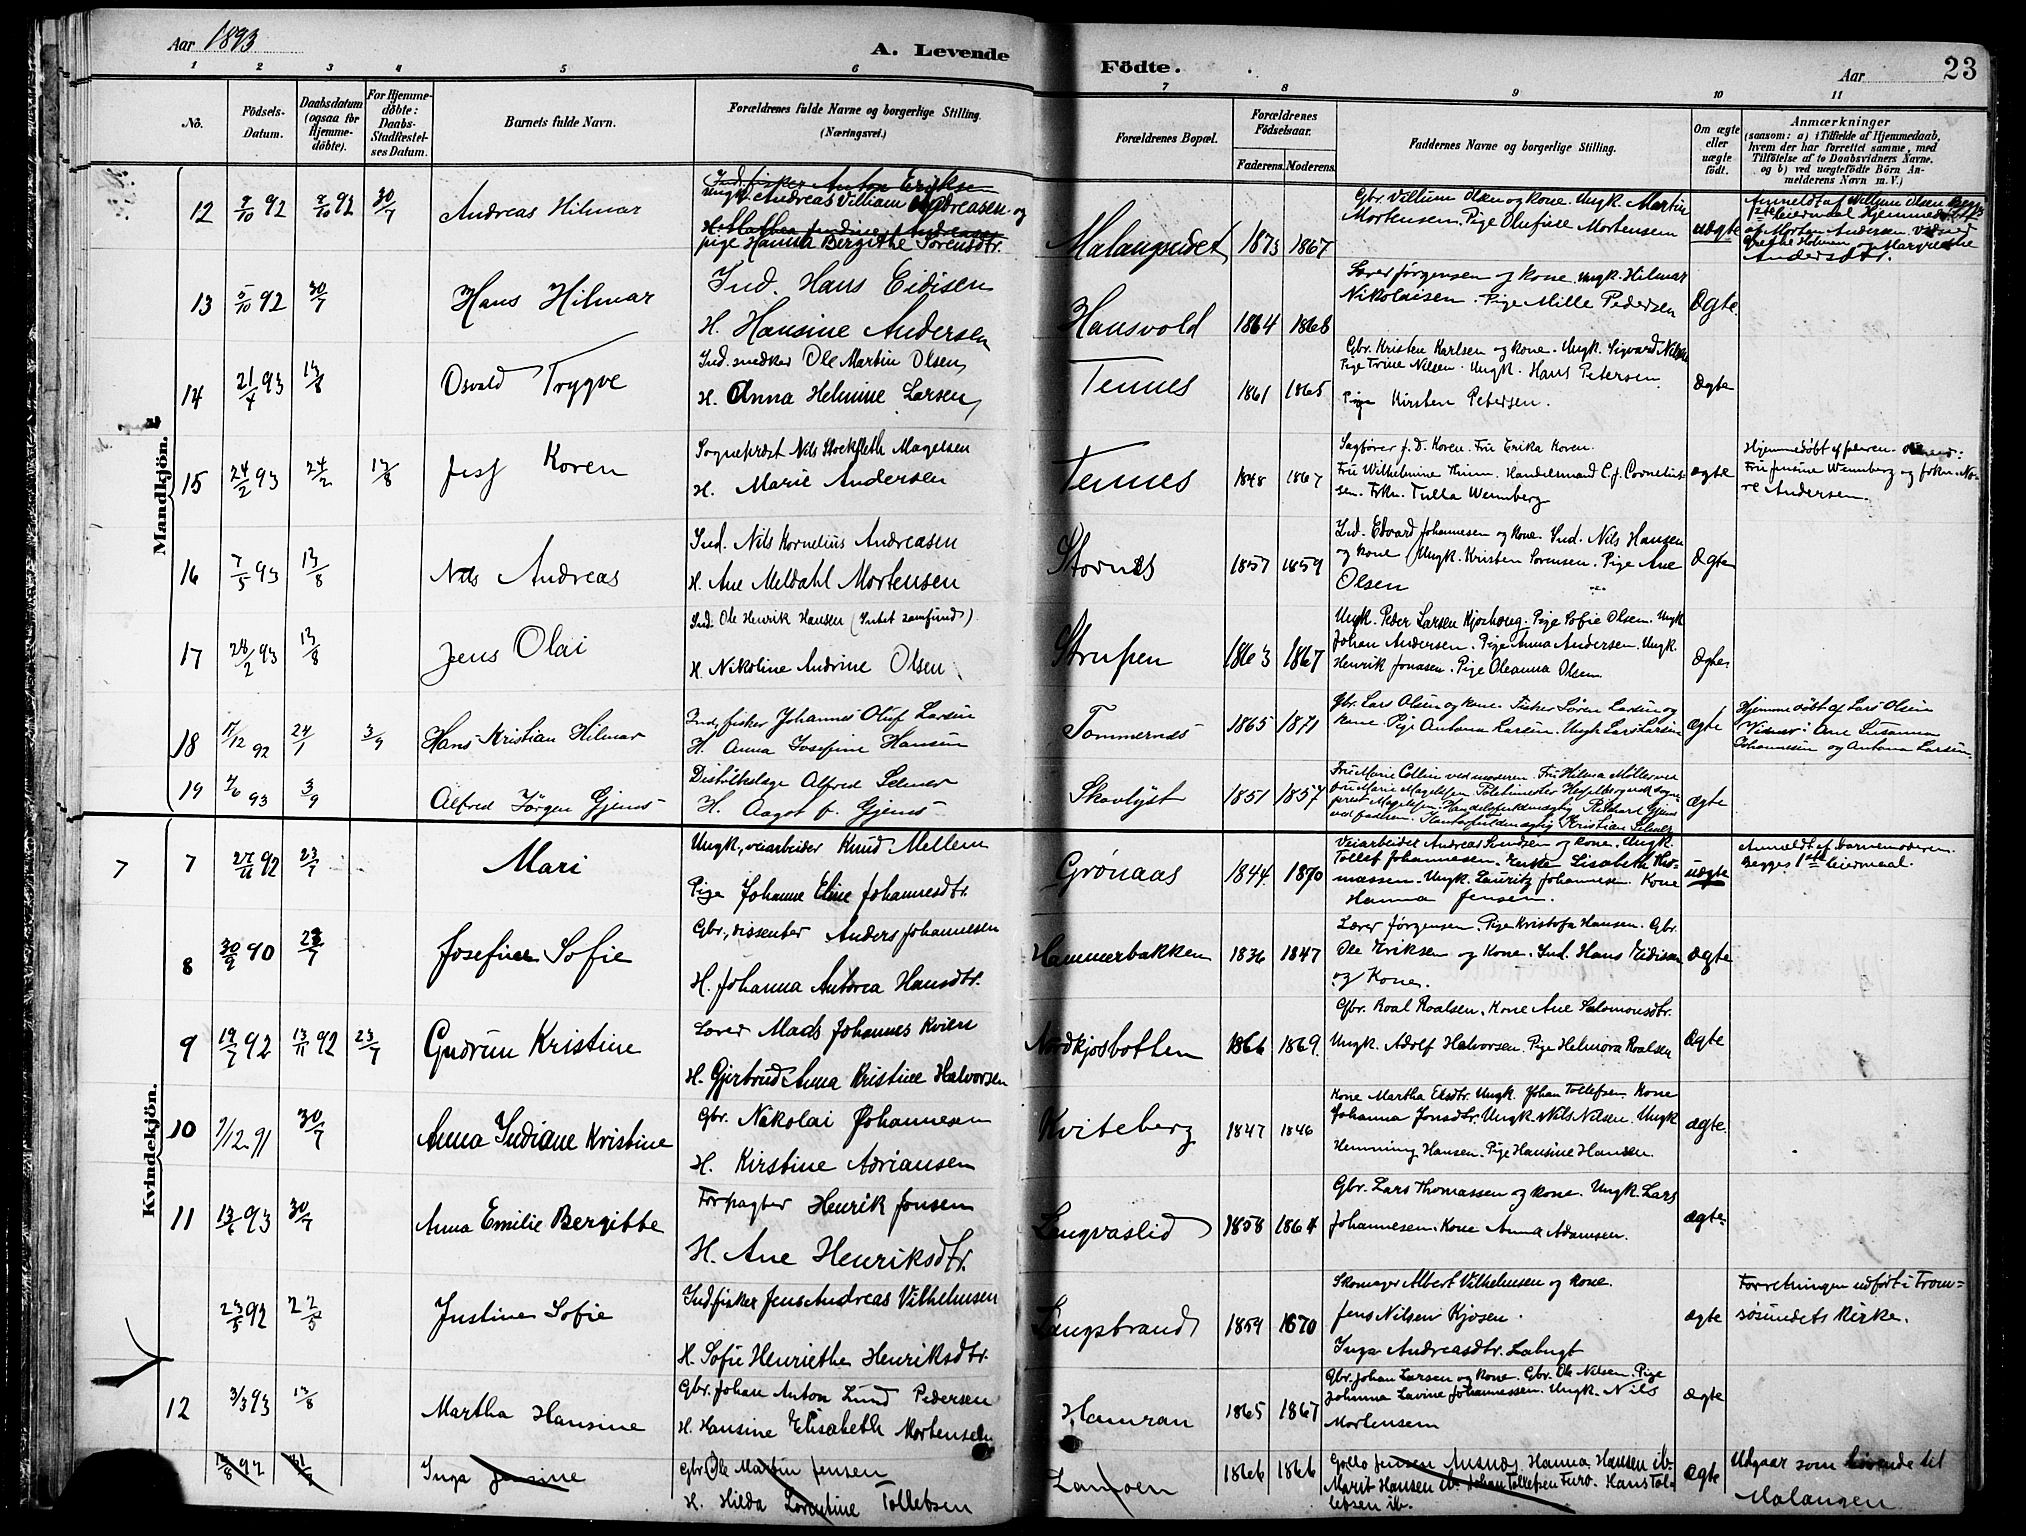 Aar 1893
A. Levende
Födte.
Aar
23
1 2 3 4 5 6 7 8 9 10 11
No.
Födsels-Datum.
Daabsdatum (ogsaa for Hjemme-döbte).
For Hjemme-döbte: Daabs-Stadfæstel-ses Datum.
Barnets fulde Navn.
Forældrenes fulde Navne og borgerlige Stilling. (Næringsvei.)
Forældrenes Bopæl.
Forældrenes Födselsaar.
Faderens. Moderens.
Faddernes Navne og borgerlige Stilling.
Om ægte eller uægte födt.
Anmærkninger
(saasom: a) i Tilfælde af Hjemmedaab, hvem der har forrettet samme, med Tilföielse af to Daabsvidners Navne. og b) ved uægtefödte Börn An-melderens Navn m. V.)
Mandkjön.
12 9/10 92 9/10 92 30/7 Andreas Hilmar
Ind. fisker Anton Eriksen
Ungk. Andreas Villiam Andreasen og
pige Hanna Bergithe Sørensdtr.
Malangseidet 1873 1867
Gbr. Villium Olsen og kone. Ungk. Martin
Mortensen. Pige Olufine Mortensen
uægte
Anmeldt af Villium Olsen. Begges
1ste leiermaal. Hjemmedøbt
af Morten Andersen. Vidner
Grethe Holmen og Margrethe
Andersdtr.
13 5/10 92 30/7 Hans Hilmar
Ind. Hans Eidisen
H. Hansine Andersen
Hansvold 1864 1868
Lærer Jørgensen og kone. Ungk. Hilmar
Nikolaisen. Pige Mille Pedersen
Ægte.
14 21/4 93 13/8 Osvald Trygve
Ind. snedker Ole Martin Olsen
H. Anna Helmine Larsen
Tennes 1861 1865
Gbr. Kristen Karlsen og kone. Ungk. Sigvard Nilsen
Pige Trine Nilsen. Ungk. Hans Petersen.
Pige Kirsten Petersen.
Ægte
15 24/2 93 24/2 13/8 Just Koren
Sogneprest Nils Stockfleth Magelsen
H. Marie Andersen
Tennes 1848 1867
Sagfører J. D. Koren. Fru Erika Koren.
Fru Wilhelmine Thiim. Handelsmand C. J. Cornelius-
sen. Frkn. Tulla Wennberg
ægte
Hjemmedøbt af faderen.
Fru Jensine Wennberg og frkn. No-
ra Andersen.
16 7/5 93 13/8 Nils Andreas
Ind. Nils Kornelius Andreasen
H. Ane Meldahl Mortensen
Stornes 1857 1859
Ind. Edvard Johannesen og kone. Ind. Nils Hansen
og kone. Ungk. Kristen Sørensen. Pige Ane
Olsen
Ægte
17 28/2 93 13/8 Jens Olai
Ind. Ole Henrik Hansen (Intet samfund)
H. Nikoline Andrine Olsen
Strupen 1863 1867
Ungk. Peder Larsen Kjoshaug. Pige Sofie Olsen. Ungk.
Johan Andersen. Pige Anna Andersen. Ungk.
Henrik Jonasen. Pige Oleanna Olsen
Ægte
18 17/12 92 24/1 3/9 Hans Kristian Hilmar
Ind., fisker Johannes Oluf Larsen
H. Anna Josefine Hansen
Tommernes 1865 1871
Gbr. Lars Olsen og kone. Fisker Søren Larsen og
kone. Pige Antona Larsen. Ungk. Lars Larsen
ægte
Hjemmedøbt af Lars Olsen
Vidner: Ane Susanna
Johannesen og Antona Larsen.
19 4/6 93 3/9 Alfred Jörgen Gjems
Distriktslæge Alfred Selmer
H. Aagot f. Gjems
Skovlyst 1851 1857
Fru Marie Collin ved moderen. Fru Hilma Møller ved
fru Marie Magelssen. Toldkasserer Hesselberg ved sogne
prest Magelssen. Handelsfuldmægtig Richard Gjems
ved faderen. Kontorfuldmægtig Kristian Selmer
ægte
Kvindekjön.
7 7 27/11 92 23/7 Mari
Ungk., veiarbeider Knud Mellem
Pige Johanne Eline Johannesdtr.
Grønaas 1844 1870
Veiarbeider Andreas Knudsen og kone. Ungk.
Tollef Johannesen. Enke Lisabeth Tho-
massen. Ungk. Lauritz Johannesen. Kone
Hanna Jensen.
uægte
Anmeldt af barnemoderen.
Begges 1ste leiermaal.
8 30/9 90 23/7 Josefine Sofie
Gbr., dissenter Anders Johannessen
H. Johanna Andrea Hansdtr.
Hammerbakken 1836 1847
Lærer Jørgensen. Pige Kristofa Hansen. Gbr.
Ole Eriksen og Kone. Ind. Hans Eidisen
og Kone.
Ægte
9 19/7 92 13/11 92 23/7 Gudrun Kristine
Lærer Mads Johannes Kvien
H. Gjertrud Anna Kristine Halvorsen
Nordkjosbotten 1866 1869.
Gbr. Roal Roalsen. Kone Ane Salomonsdtr.
Ungk. Adolf Halvorsen. Pige Helmora Roalsen
Ægte
10 9/12 91 30/7 Anna Indiane Kristine
Gbr. Nikolai Johannesen
H. Kirstine Adriansen
Kviteberg 1847 1846
Kone Martha Elsdtr. Ungk. Johan Tollefsen. Kone
Johanna Jonsdtr. Ungk. Nils Nilsen. Ungk
Hemming Hansen. Pige Hansine Hansen.
ægte.
11 13/6 93 30/7 Anna Emilie Bergitte
Forpagter Henrik Jonsen
H. Ane Henriksdtr.
Lengvaslid 1858 1864
Gbr. Lars Thomassen og kone. Ungk. Lars
Johannesen. Kone Anna Adamsen.
ægte
23/5 92 22/5 Justine Sofie
Ind. fisker Jens Andreas Vilhelmsen
H. Sofie Henriethe Henriksdtr.
Langstrand 1859 1870
Skomager Albert Vilhelmsen og kone.
Jens Nilsen Kjosen.
Inga Andreasdtr.
ægte
Forretningen udført i Trom-
søsundets Kirke.
12 3/3 93 13/8 Martha Hansine
Gbr. Johan Anton Lund Pedersen
H. Hansine Elisabeth Mortensen
Hamran 1865 1867
Gbr. Johan Larsen og kone. Gbr. Ole Nilsen. Pige
Johanna Lavine Johannessen. Ungk. Nils
Mortensen
Ægte
Inga Jensine
Gbr. Ole Martin Jensen
H. Hilda Lorentine Tollefsen
1866 1866
Jensen Ansnæs. Hanna Hansen ib.
Marit Hansen ib. Johan Tollefsen Furo. Hans Tol-
lefsen ib.
Ægte
Udgaar som til
Malangen